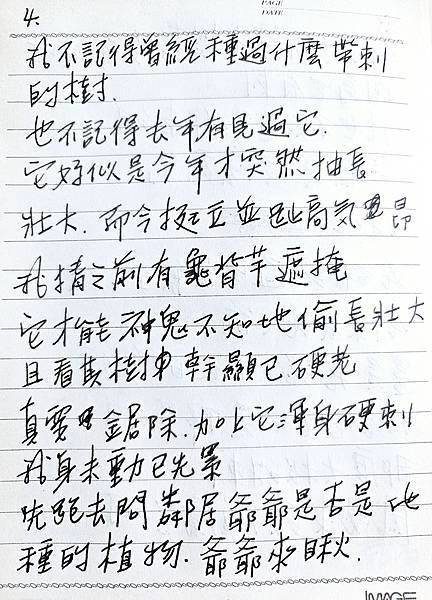 4.
PAGE
DATE
我不記得曾經種過什麼帶刺
的樹.
也不記得去年有見過它.
它好似是今年才突然抽長
壯大.而今挺立並趾高気昂
我猜之前有龜背芋遮掩
它才能神鬼不知地偷長壯大
且看其樹幹顯已硬老
真要鋸除.加上它渾身硬刺
我身未動已先累
先跑去問鄰居爺爺是否是他
種的植物.爺爺來瞅.
IMAGE